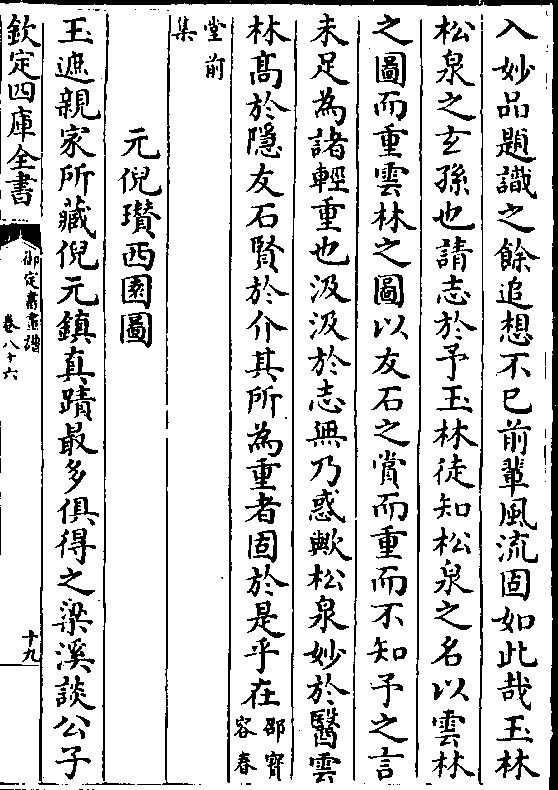 入妙品題識之餘追想不已前輩風流固如此哉玉林
松泉之玄孫也請志於予玉林徒知松泉之名以雲林
之圖而重雲林之圖以友石之賞而重而不知予之言
未足為諸輕重也汲汲於志無乃惑歟松泉妙於醫雲
林髙於隱友石賢於介其所為重者固於是乎在邵寳容春
堂前集
元倪瓚西園圖
玉遮親家所藏倪元鎮真蹟最多俱得之梁溪談公子
欽定四庫全書
御定書畫譜
卷八十六
十九